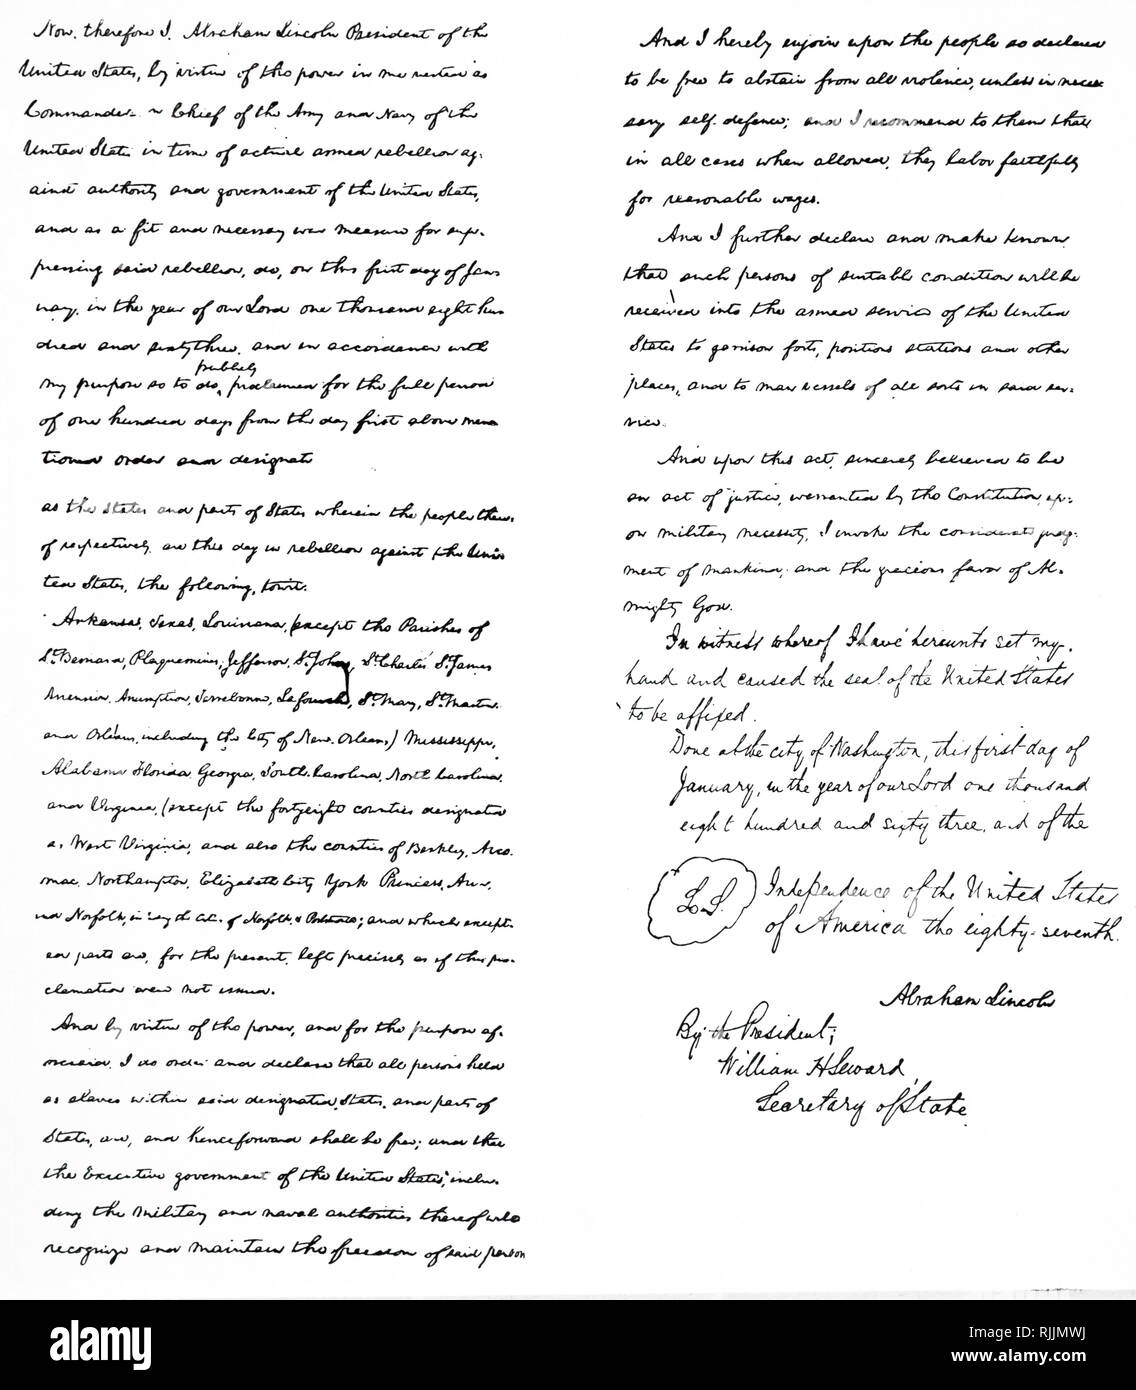 Now, therefore I, Abraham Lincoln President of the
United States, by virtue of the power in me vested as
Commander-in-Chief of the Army and Navy of the
United States in time of actual armed rebellion ag-
ainst authority and government of the United States,
and as a fit and necessary war measure for sup-
pressing said rebellion, do, on this first day of Jan-
uary, in the year of our Lord one thousand eight hun
dred and sixty three, and in accordance with
my purpose so to do, publicly proclaimed for the full period
of one hundred days from the day first above men
tioned order and designate
as the States and parts of States wherein the people there-
of respectively, are this day in rebellion against the Uni-
ted States, the following, towit:
Arkansas, Texas, Louisiana, (except the Parishes of
St. Bernard, Plaquemines, Jefferson, St. John, St. Charles, St. James
Ascension, Assumption, Terrebonne, Lafourche, St. Mary, St. Martin,
and Orleans, including the City of New-Orleans) Mississippi,
Alabama, Florida, Georgia, South-Carolina, North-Carolina,
and Virginia, (except the fortyeight counties designated
as West Virginia, and also the counties of Berkley, Acco-
mac, Northampton, Elizabeth-City, York, Princess Ann,
and Norfolk, including the cities of Norfolk & Portsmouth; and which except-
ed parts are, for the present, left precisely as if this pro-
clamation were not issued.
And by virtue of the power, and for the purpose af-
oresaid, I do order and declare that all persons held
as slaves within said designated States, and parts of
States, are, and henceforward shall be free; and that
the Executive government of the United States, inclu-
ding the military and naval authorities thereof will
recognize and maintain the freedom of said persons
And I hereby enjoin upon the people so declared
to be free to abstain from all violence, unless in neces-
sary self-defence; and I recommend to them that
in all cases when allowed, they labor faithfully
for reasonable wages.
And I further declare and make known,
that such persons of suitable condition will be
received into the armed service of the United
States to garrison forts, positions, stations and other
places, and to man vessels of all sorts in said ser-
vice.
And upon this act, sincerely believed to be
an act of justice, warranted by the Constitution, up-
on military necessity, I invoke the considerate judg-
ment of mankind, and the gracious favor of Al-
mighty God.
In witness whereof I have hereunto set my
hand and caused the seal of the United States
to be affixed.
Done at the city of Washington, this first day of
January, in the year of our Lord one thousand
eight hundred and sixty three, and of the
L.S. Independence of the United States
of America the eighty-seventh.
Abraham Lincoln
By the President;
William H Seward,
Secretary of State.
alamy
Image ID: RJJMWJ
www.alamy.com